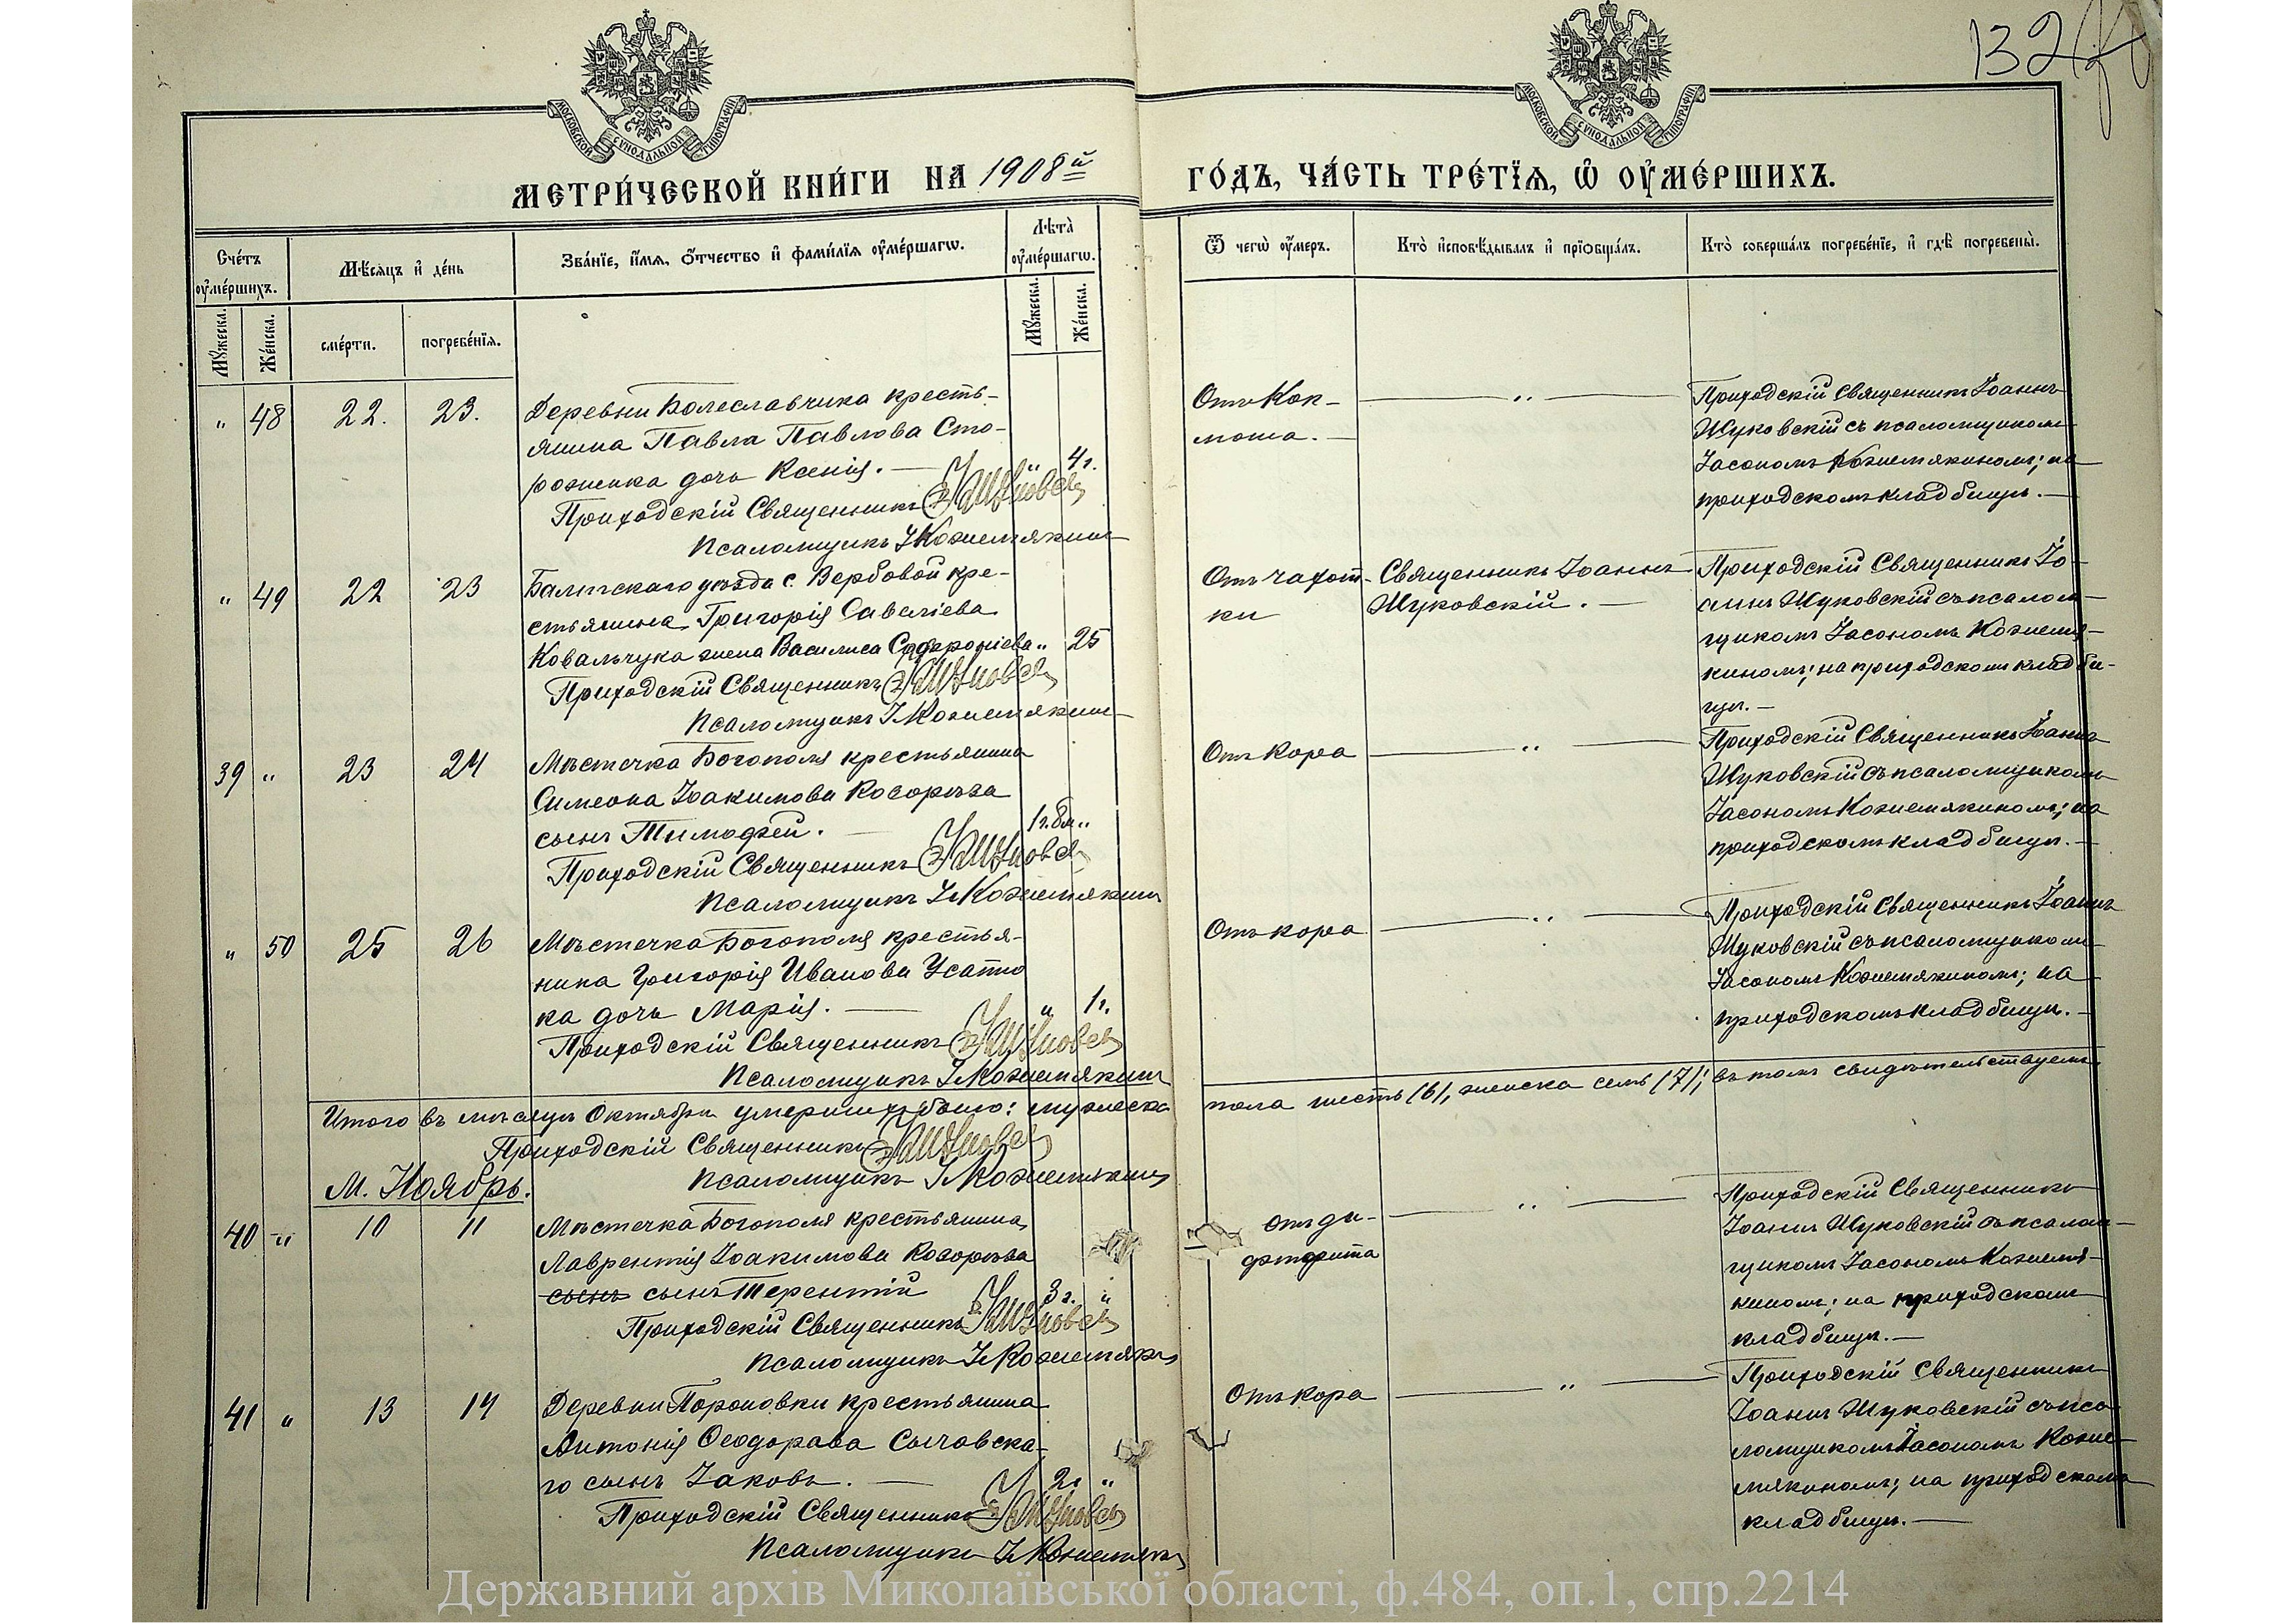 132
МОСКОВСКОЙ СѴНОДАЛЬНОЙ ТИПОГРАФІИ
МОСКОВСКОЙ СѴНОДАЛЬНОЙ ТИПОГРАФІИ
МЕТРИ́ЧЕСКОЙ КНИ́ГИ НА 1908й
ГО́ДЪ, ЧА́СТЬ ТРЕ́ТЇѦ, Ѡ҆ ОУ҆МЕ́РШИХЪ.
Сче́тъ оу҆ме́ршихъ.
Мѣ́сѧцъ и҆ де́нь
Зва́нїе, и҆́мѧ, ѻ҆́тчество и҆ фами́лїѧ оу҆ме́ршагѡ.
Лѣта̀ оу҆ме́ршагѡ.
Ѿ чегѡ̀ оу҆́меръ.
Кто̀ и҆сповѣ́дывалъ и҆ прїѡбща́лъ.
Кто̀ соверша́лъ погребе́нїе, и҆ гдѣ̀ погребены̀.
Мꙋ́жеска.
Же́нска.
сме́рти.
погребе́нїѧ.
Мꙋ́жеска.
Же́нска.
" 48 22. 23.
Деревни Болеславчика кресть-
янина Павла Павлова Сто-
роженка дочь Ксенія. — " 4 г.
Приходскій Священникъ
Псаломщикъ І Кожемякинъ
Отъ Кок-
люша. —
— " —
Приходскій Священникъ Іоаннъ
Жуковскій съ псаломщикомъ
Іасономъ Кожемякиномъ; на
приходскомъ кладбищѣ. —
" 49 22 23
Балтскаго уѣзда с. Вербовой кре-
стьянина Григорія Савеліева
Ковальчука жена Василиса Софроніева " 25
Приходскій Священникъ
Псаломщикъ І Кожемякинъ
Отъ чахот-
ки
Священникъ Іоаннъ
Жуковскій. —
Приходскій Священникъ Іо-
аннъ Жуковскій съ псалом-
щикомъ Іасономъ Кожемя-
киномъ; на приходскомъ кладби-
щѣ. —
39 " 23 24
Мѣстечка Богополя крестьянина
Симеона Іоакимова Косорѣза
сынъ Тимофей. — 1 г. 8 м. "
Приходскій Священникъ
Псаломщикъ І Кожемякинъ
Отъ кора
— " —
Приходскій Священникъ Іоаннъ
Жуковскій съ псаломщикомъ
Іасономъ Кожемякиномъ; на
приходскомъ кладбищѣ. —
" 50 25 26
Мѣстечка Богополя крестья-
нина Григорія Иванова Усатю
ка дочь Марія. — " 1 г.
Приходскій Священникъ
Псаломщикъ І Кожемякинъ
Отъ кора
— " —
Приходскій Священникъ Іоаннъ
Жуковскій съ псаломщикомъ
Іасономъ Кожемякиномъ; на
приходскомъ кладбищѣ. —
Итого въ мѣсяцѣ Октябрѣ умершихъ было: мужеска
пола шесть (6), женска семь (7); въ томъ свидѣтельствуемъ
Приходскій Священникъ
Псаломщикъ І Кожемякинъ
М. Ноябрь.
40 " 10 11
Мѣстечка Богополя крестьянина
Лаврентія Іоакимова Косорѣза
сынъ сынъ Терентій 3 г. "
Приходскій Священникъ
Псаломщикъ І Кожемякинъ
отъ ди-
фтерита
— " —
Приходскій Священникъ
Іоаннъ Жуковскій съ псалом-
щикомъ Іасономъ Кожемя-
киномъ; на приходскомъ
кладбищѣ. —
41 " 13 14
Деревни Пороповки крестьянина
Антонія Ѳеодорава Сычовска-
го сынъ Іаковъ. — 2 г "
Приходскій Священникъ
Псаломщикъ І Кожемякинъ
Отъ кора
— " —
Приходскій Священникъ
Іоаннъ Жуковскій съ пса-
ломщикомъ Іасономъ Коже-
мякиномъ; на приходскомъ
кладбищѣ. —
Державний архів Миколаївської області, ф.484, оп.1, спр.2214